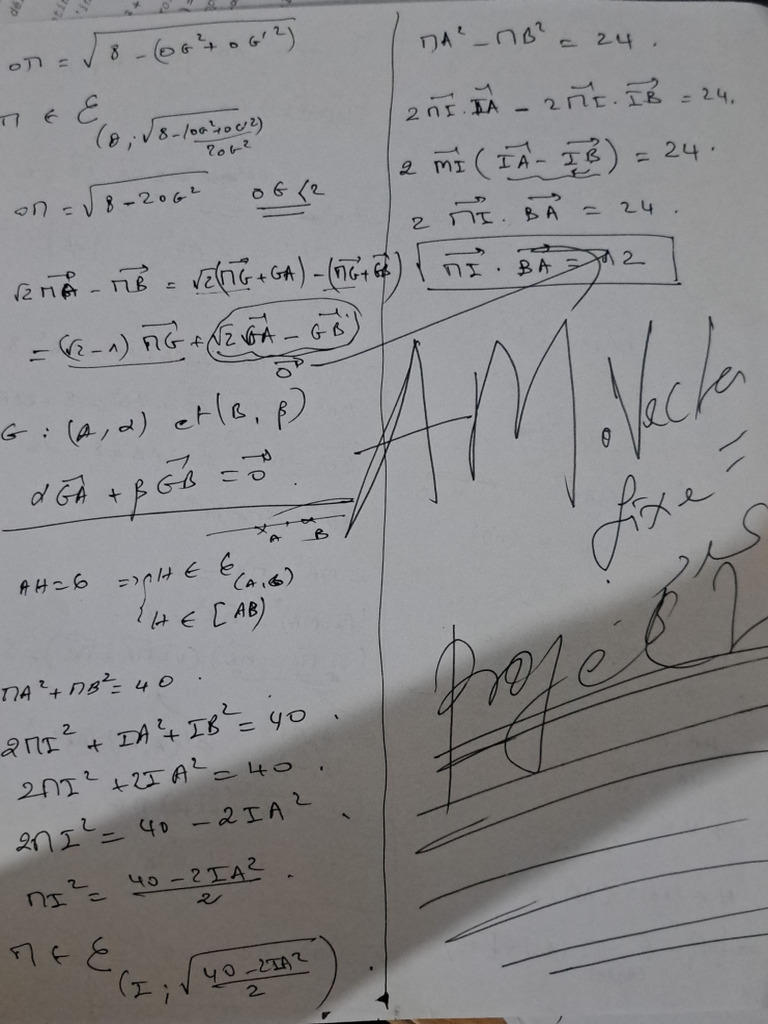 OM = √(8 - (OG² + OG'²))
M ∈ 𝓔(O; √(8-(OG²+OG'²)))
2OG²
OM = √(8 - 2OG²)    OG < 2
√2 MA⃗ - MB⃗ = √2(MG⃗ + GA⃗) - (MG⃗ + GB⃗)
= (√2 - 1) MG⃗ + (√2 GA⃗ - GB⃗)
0⃗
G : (A, α) et (B, β)
α GA⃗ + β GB⃗ = 0⃗.
A B
AH = 6 ⇒ { H ∈ 𝓔(A, 6)
H ∈ [AB)
MA² + MB² = 40.
2MI² + IA² + IB² = 40.
2MI² + 2IA² = 40.
2MI² = 40 - 2IA².
MI² = (40 - 2IA²)/2.
M ∈ 𝓔(I; √((40 - 2IA²)/2)).
MA² - MB² = 24.
2 MI⃗ . IA⃗ - 2 MI⃗ . IB⃗ = 24.
2 MI⃗ (IA⃗ - IB⃗) = 24.
2 MI⃗ . BA⃗ = 24.
MI⃗ . BA⃗ = 12
AM . Vecteur
fixe =